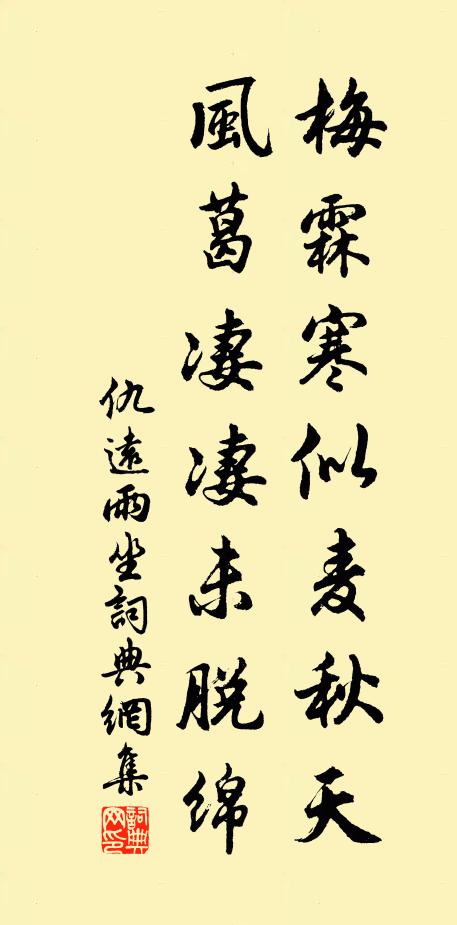 梅霖寒似麦秋天
風葛凄凄未脱绵
仇遠雨坐詞典網集
詞典网印